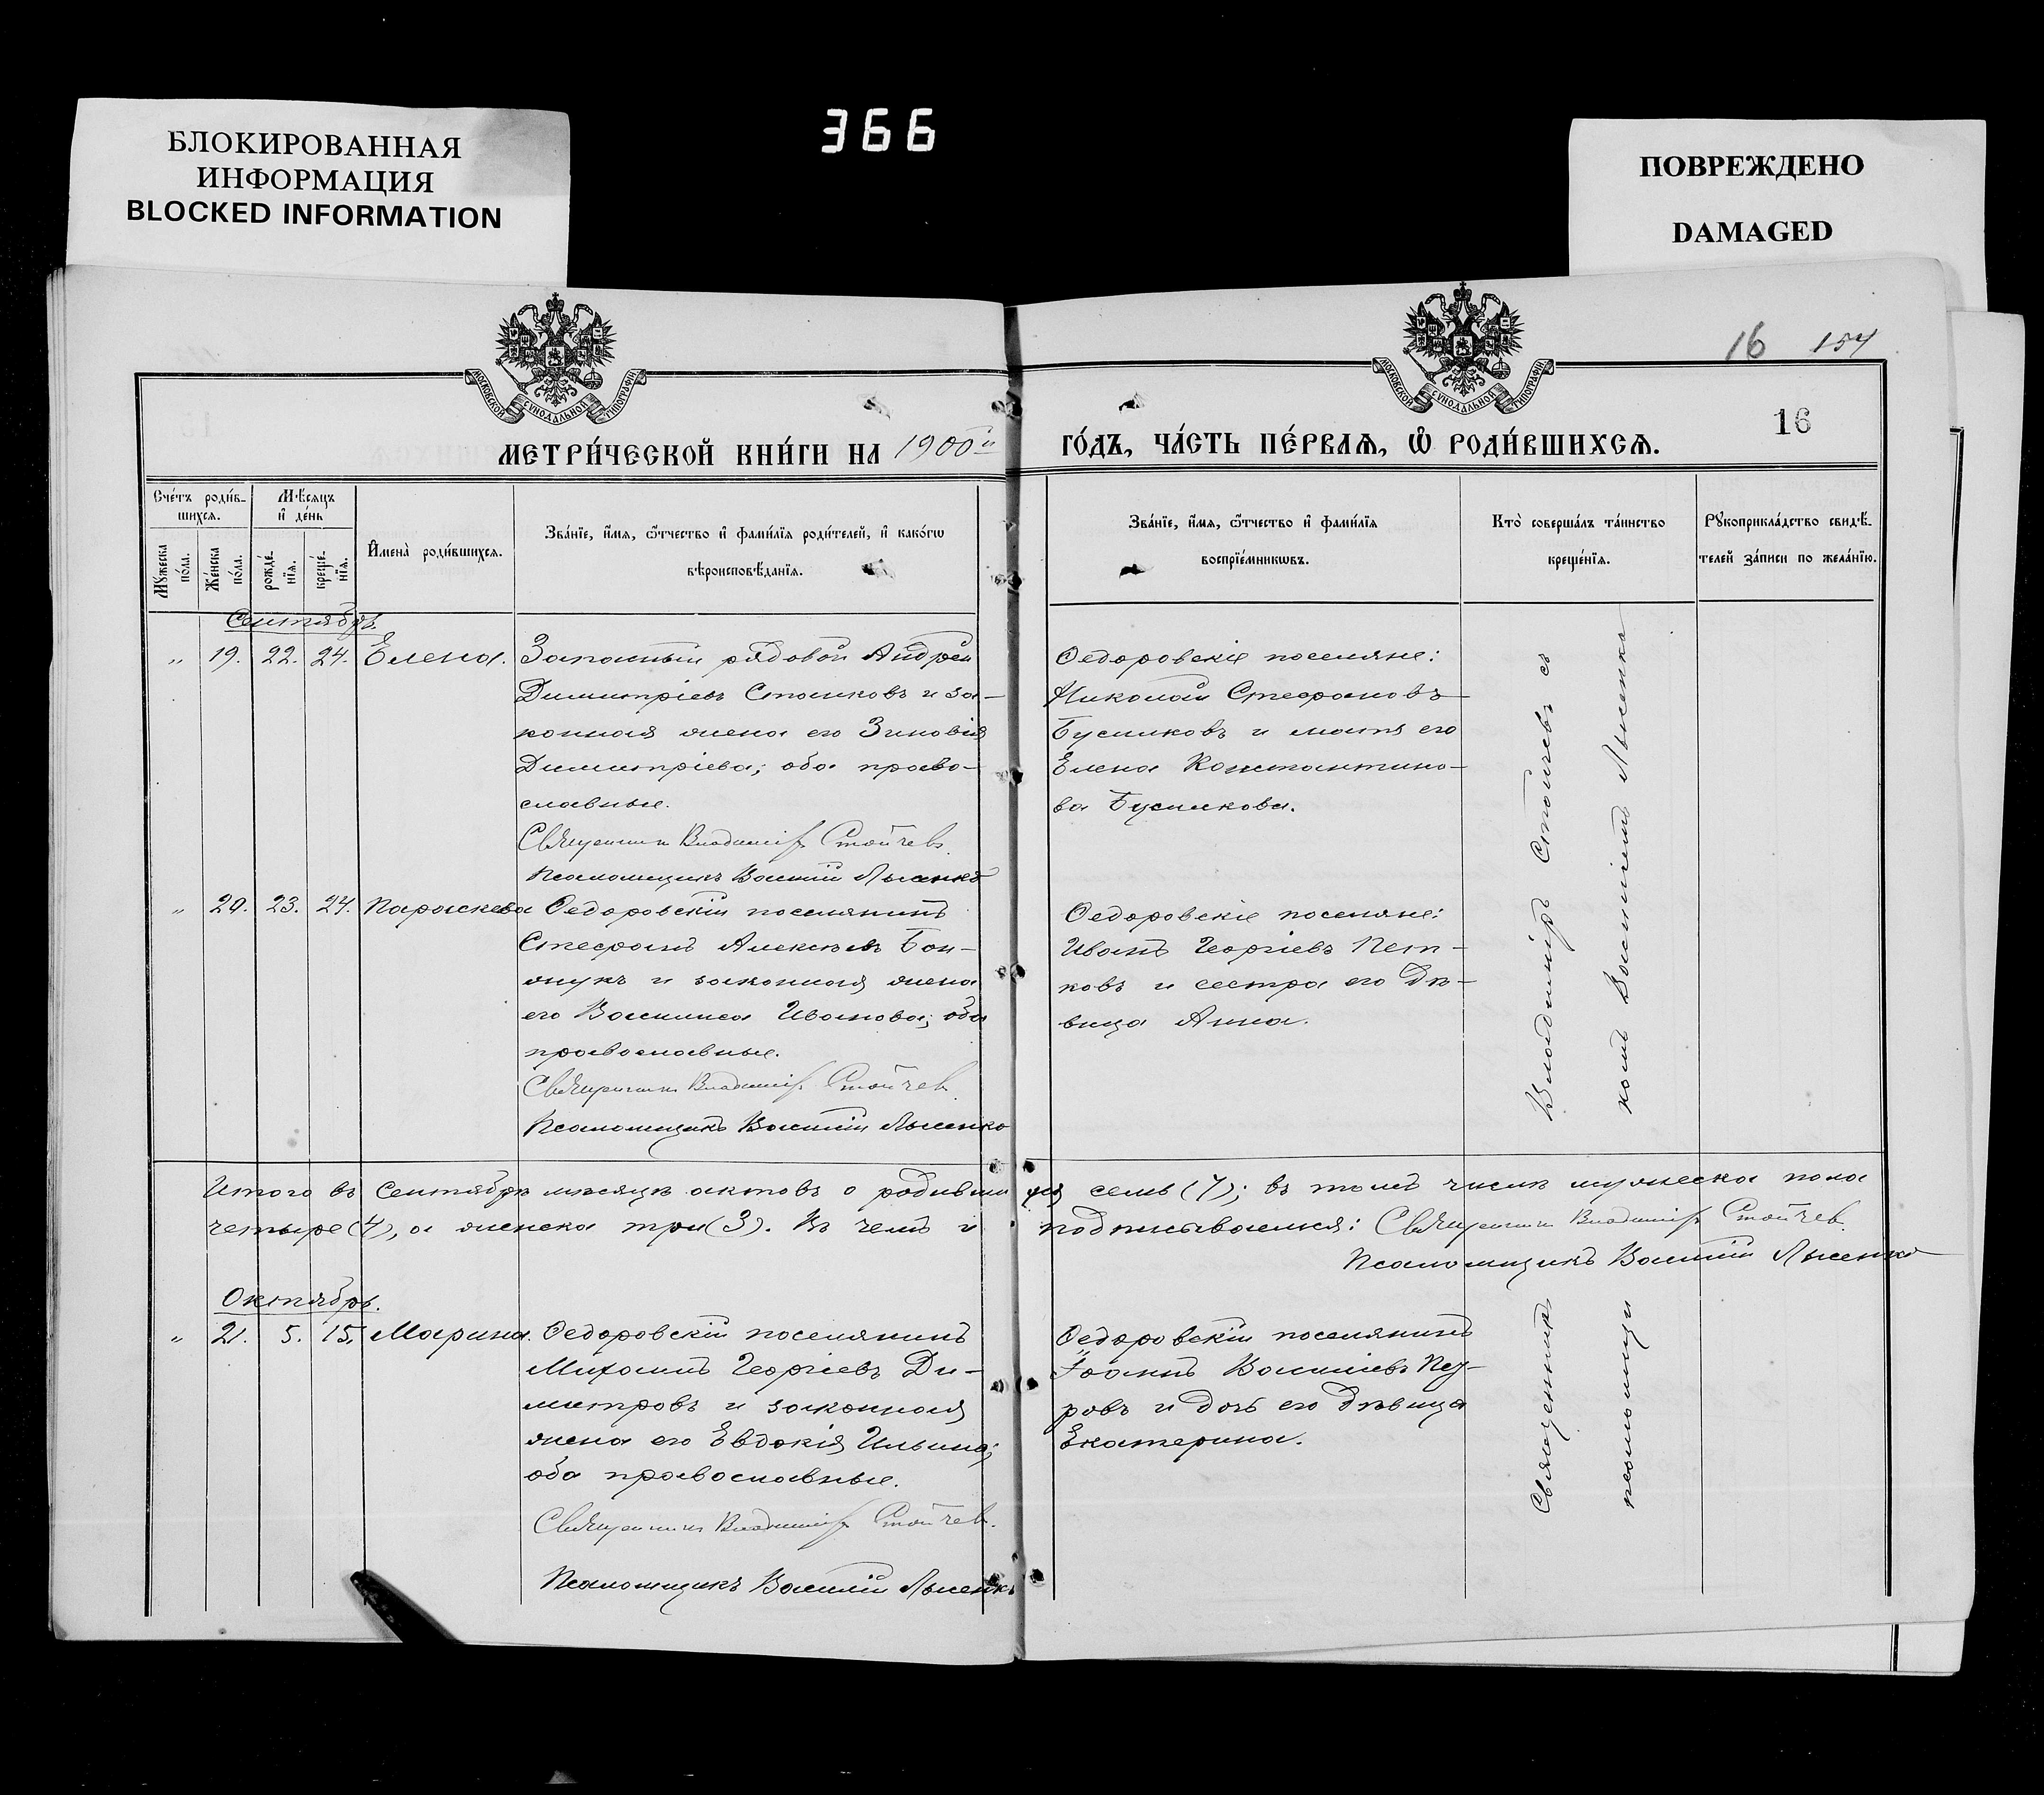 366
БЛОКИРОВАННАЯ
ИНФОРМАЦИЯ
BLOCKED INFORMATION
ПОВРЕЖДЕНО
DAMAGED
16 154
МОСКОВСКОЙ СѴНОДАЛЬНОЙ ТИПОГРАФІИ
МОСКОВСКОЙ СѴНОДАЛЬНОЙ ТИПОГРАФІИ
16
МЕТРИ́ЧЕСКОЙ КНИ́ГИ НА 1900й ГО́ДЪ, ЧА́СТЬ ПЕ́РВАѦ, Ѽ РОДИ́ВШИХСѦ.
Сче́тъ роди́в-
шихсѧ.
Мꙋжеска
по́ла.
Же́нска
по́ла.
Мѣ́сѧцъ
и҆ де́нь
рожде́-
нїѧ.
креще́-
нїѧ.
И҆мена̀ роди́вшихсѧ.
Зва́нїе, и҆́мѧ, ѻ҆́тчество и҆ фами́лїѧ роди́телей, и҆ како́гѡ
вѣроисповѣ́данїѧ.
Зва́нїе, и҆́мѧ, ѻ҆́тчество и҆ фами́лїѧ
воспрїе́мникѡвъ.
Кто̀ соверша́лъ та́инство
креще́нїѧ.
Рꙋкоприкла́дство свидѣ́-
телей за́писи по жела́нїю.
Сентябрь.
" 19. 22. 24. Елена.
Запасный рядовой Андрей
Димитріевъ Станковъ и за-
конная жена его Зиновія
Димитріева; оба право-
славные.
Священникъ Владиміръ Стойчевъ.
Псаломщикъ Василій Лысенко
Ѳедоровскіе поселяне:
Николай Стефановъ
Бусликовъ и мать его
Елена Константино-
ва Бусликова.
" 20. 23. 24. Параскева
Ѳедоровскій поселянинъ
Стефанъ Алексѣевъ Бон-
жукъ и законная жена
его Василиса Иванова; оба
православные.
Священникъ Владиміръ Стойчевъ.
Псаломщикъ Василій Лысенко
Ѳедоровскіе поселяне:
Иванъ Георгіевъ Пет-
ковъ и сестра его дѣ-
вица Анна.
Итого въ Сентябрѣ мѣсяцѣ актовъ о родившихся семь (7); въ томъ числѣ мужеска пола
четыре (4), а женска три (3). Въ чемъ и подписываемся: Священникъ Владиміръ Стойчевъ.
Псаломщикъ Василій Лысенко
Октябрь.
" 21. 5. 15. Марина.
Ѳедоровскій поселянинъ
Михаилъ Георгіевъ Ди-
митровъ и законная
жена его Евдокія Ильина;
оба православные.
Священникъ Владиміръ Стойчевъ.
Псаломщикъ Василій Лысенко
Ѳедоровскій поселянинъ
Іоаннъ Василіевъ
ровъ и дочь его дѣвица
Екатерина.
Священникъ Владиміръ Стоичевъ съ
псаломщикомъ Василіемъ Лысенко